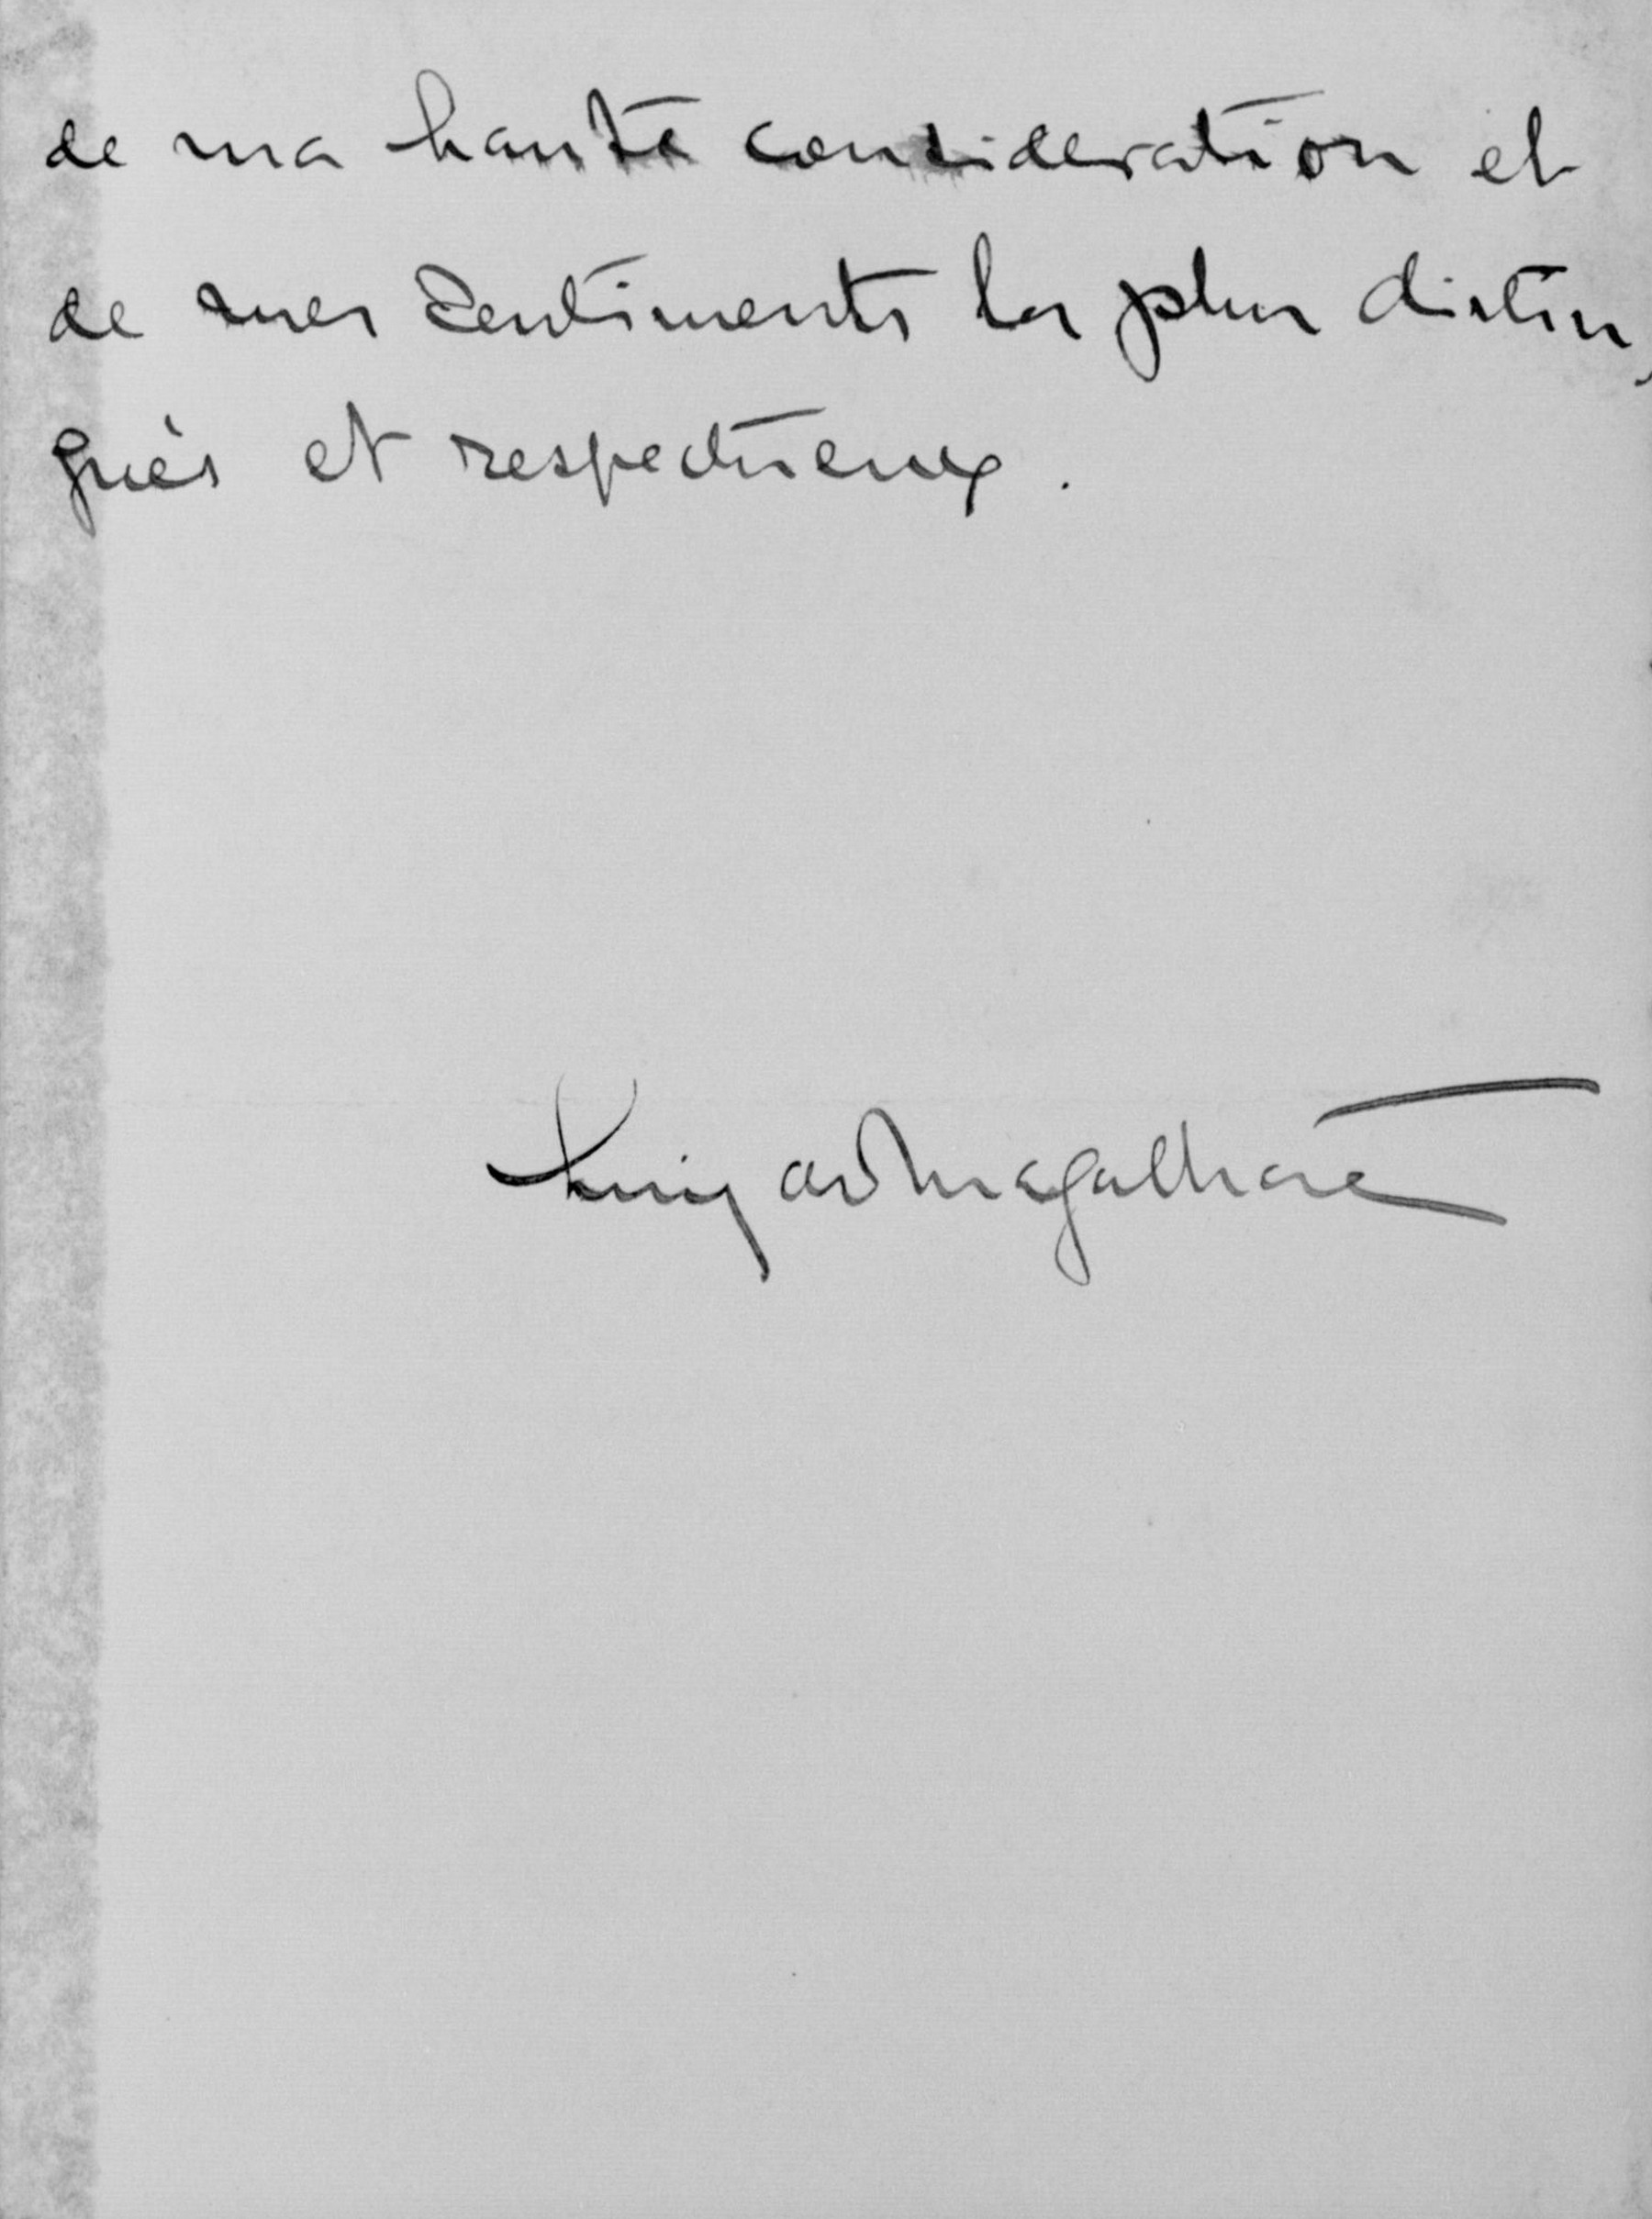 de ma haute consideration et
de mes sentiments les plus distin
gués et respectueux.
Luiz de Magalhães